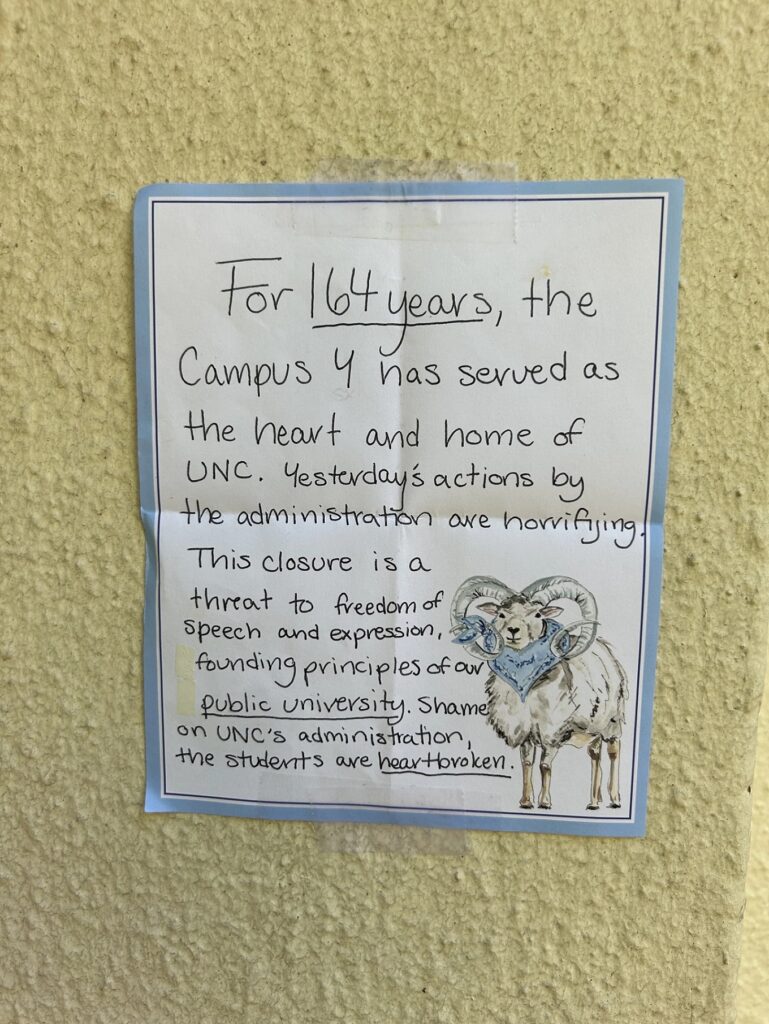 For 164 years, the
Campus Y has served as
the heart and home of
UNC. Yesterday's actions by
the administration are horrifying.
This closure is a
threat to freedom of
speech and expression,
founding principles of our
public university. Shame
on UNC's administration,
the students are heartbroken.